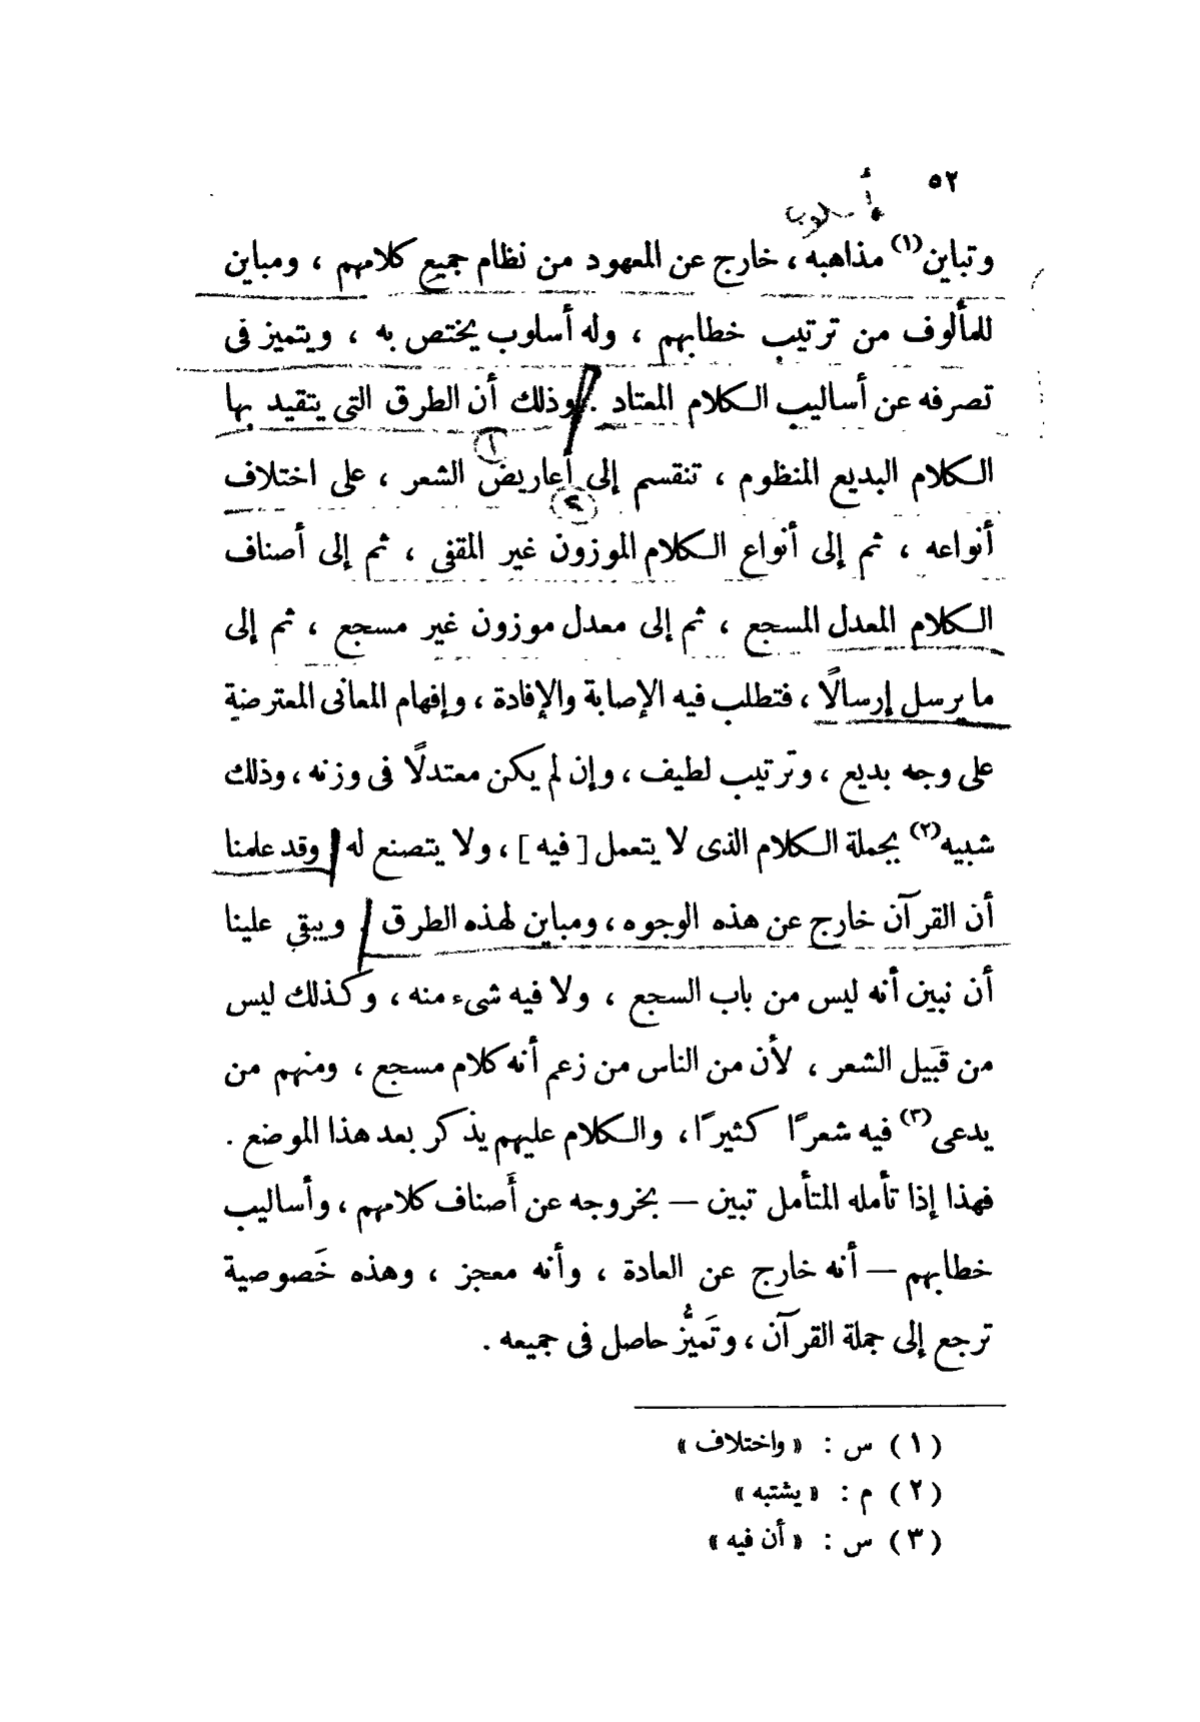 ٥٢
أسلوب
وتباين(١) مذاهبه ، خارج عن المعهود من نظام جميع كلامهم ، ومباين
للمألوف من ترتيب خطابهم ، وله أسلوب يختص به ، ويتميز فى
تصرفه عن أساليب الكلام المعتاد . وذلك أن الطرق التى يتقيد بها
١
الكلام البديع المنظوم ، تنقسم إلى أعاريض الشعر ، على اختلاف
٢
أنواعه ، ثم إلى أنواع الكلام الموزون غير المقفى ، ثم إلى أصناف
الكلام المعدل المسجع ، ثم إلى معدل موزون غير مسجع ، ثم إلى
ما يرسل إرسالًا ، فتطلب فيه الإصابة والإفادة ، وإفهام المعانى المعترضة
على وجه بديع ، وترتيب لطيف ، وإن لم يكن معتدلًا فى وزنه ، وذلك
شبيه(٢) بجملة الكلام الذى لا يتعمل [ فيه ] ، ولا يتصنع له وقد علمنا
أن القرآن خارج عن هذه الوجوه ، ومباين لهذه الطرق . ويبقى علينا
أن نبين أنه ليس من باب السجع ، ولا فيه شىء منه ، وكذلك ليس
من قَبيل الشعر ، لأن من الناس من زعم أنه كلام مسجع ، ومنهم من
يدعى(٣) فيه شعرًا كثيرًا ، والكلام عليهم يذكر بعد هذا الموضع .
فهذا إذا تأمله المتأمل تبين — بخروجه عن أَصناف كلامهم ، وأساليب
خطابهم — أنه خارج عن العادة ، وأنه معجز ، وهذه خَصوصية
ترجع إلى جملة القرآن ، وتَميُّز حاصل فى جميعه .
( ١ ) س : « واختلاف »
( ٢ ) م : « يشتبه »
( ٣ ) س : « أن فيه »